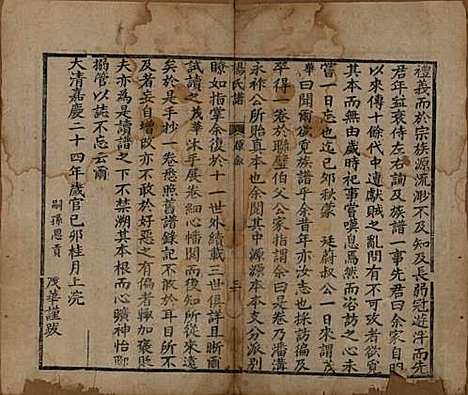 禮義而於宗族源流渺不及知及長弱冠遊泮而先
君年益衰侍左右詢及族譜一事先君曰余家自明
以來傳十餘代中遭獻賊之亂間有不可攷者欲覓
其本而久歲月失之是以每於祀事嘗嘆息焉然而咨訪之心未
嘗一日忘也迄己卯秋蒙　廷蔚叔公一日來謂茂
華曰聞爾欲覓族譜乎余昔年亦甚有志採訪徧及
卒得一卷於聯璧伯父公家指謂余曰是卷乃潘溝
永祚公所貽真本也余閱其中源源本本支分派別
楊氏譜　原敘　三
瞭如指掌余復於十一世外續載三世俱詳且悉爾
試讀之茂華沐手展卷細心檣閱而後知所從來遠
矣於是手抄一卷悉照舊譜錄記不敢於耳目所不
及者妄自增改亦不敢於好惡之有偶者輒加褒貶
夫亦為是讀譜之下不禁溯其本根而心曠神怡即
搦管以誌不忘云爾
大清嘉慶二十四年歲官己卯桂月上浣
嗣孫恩貢　茂華謹跋